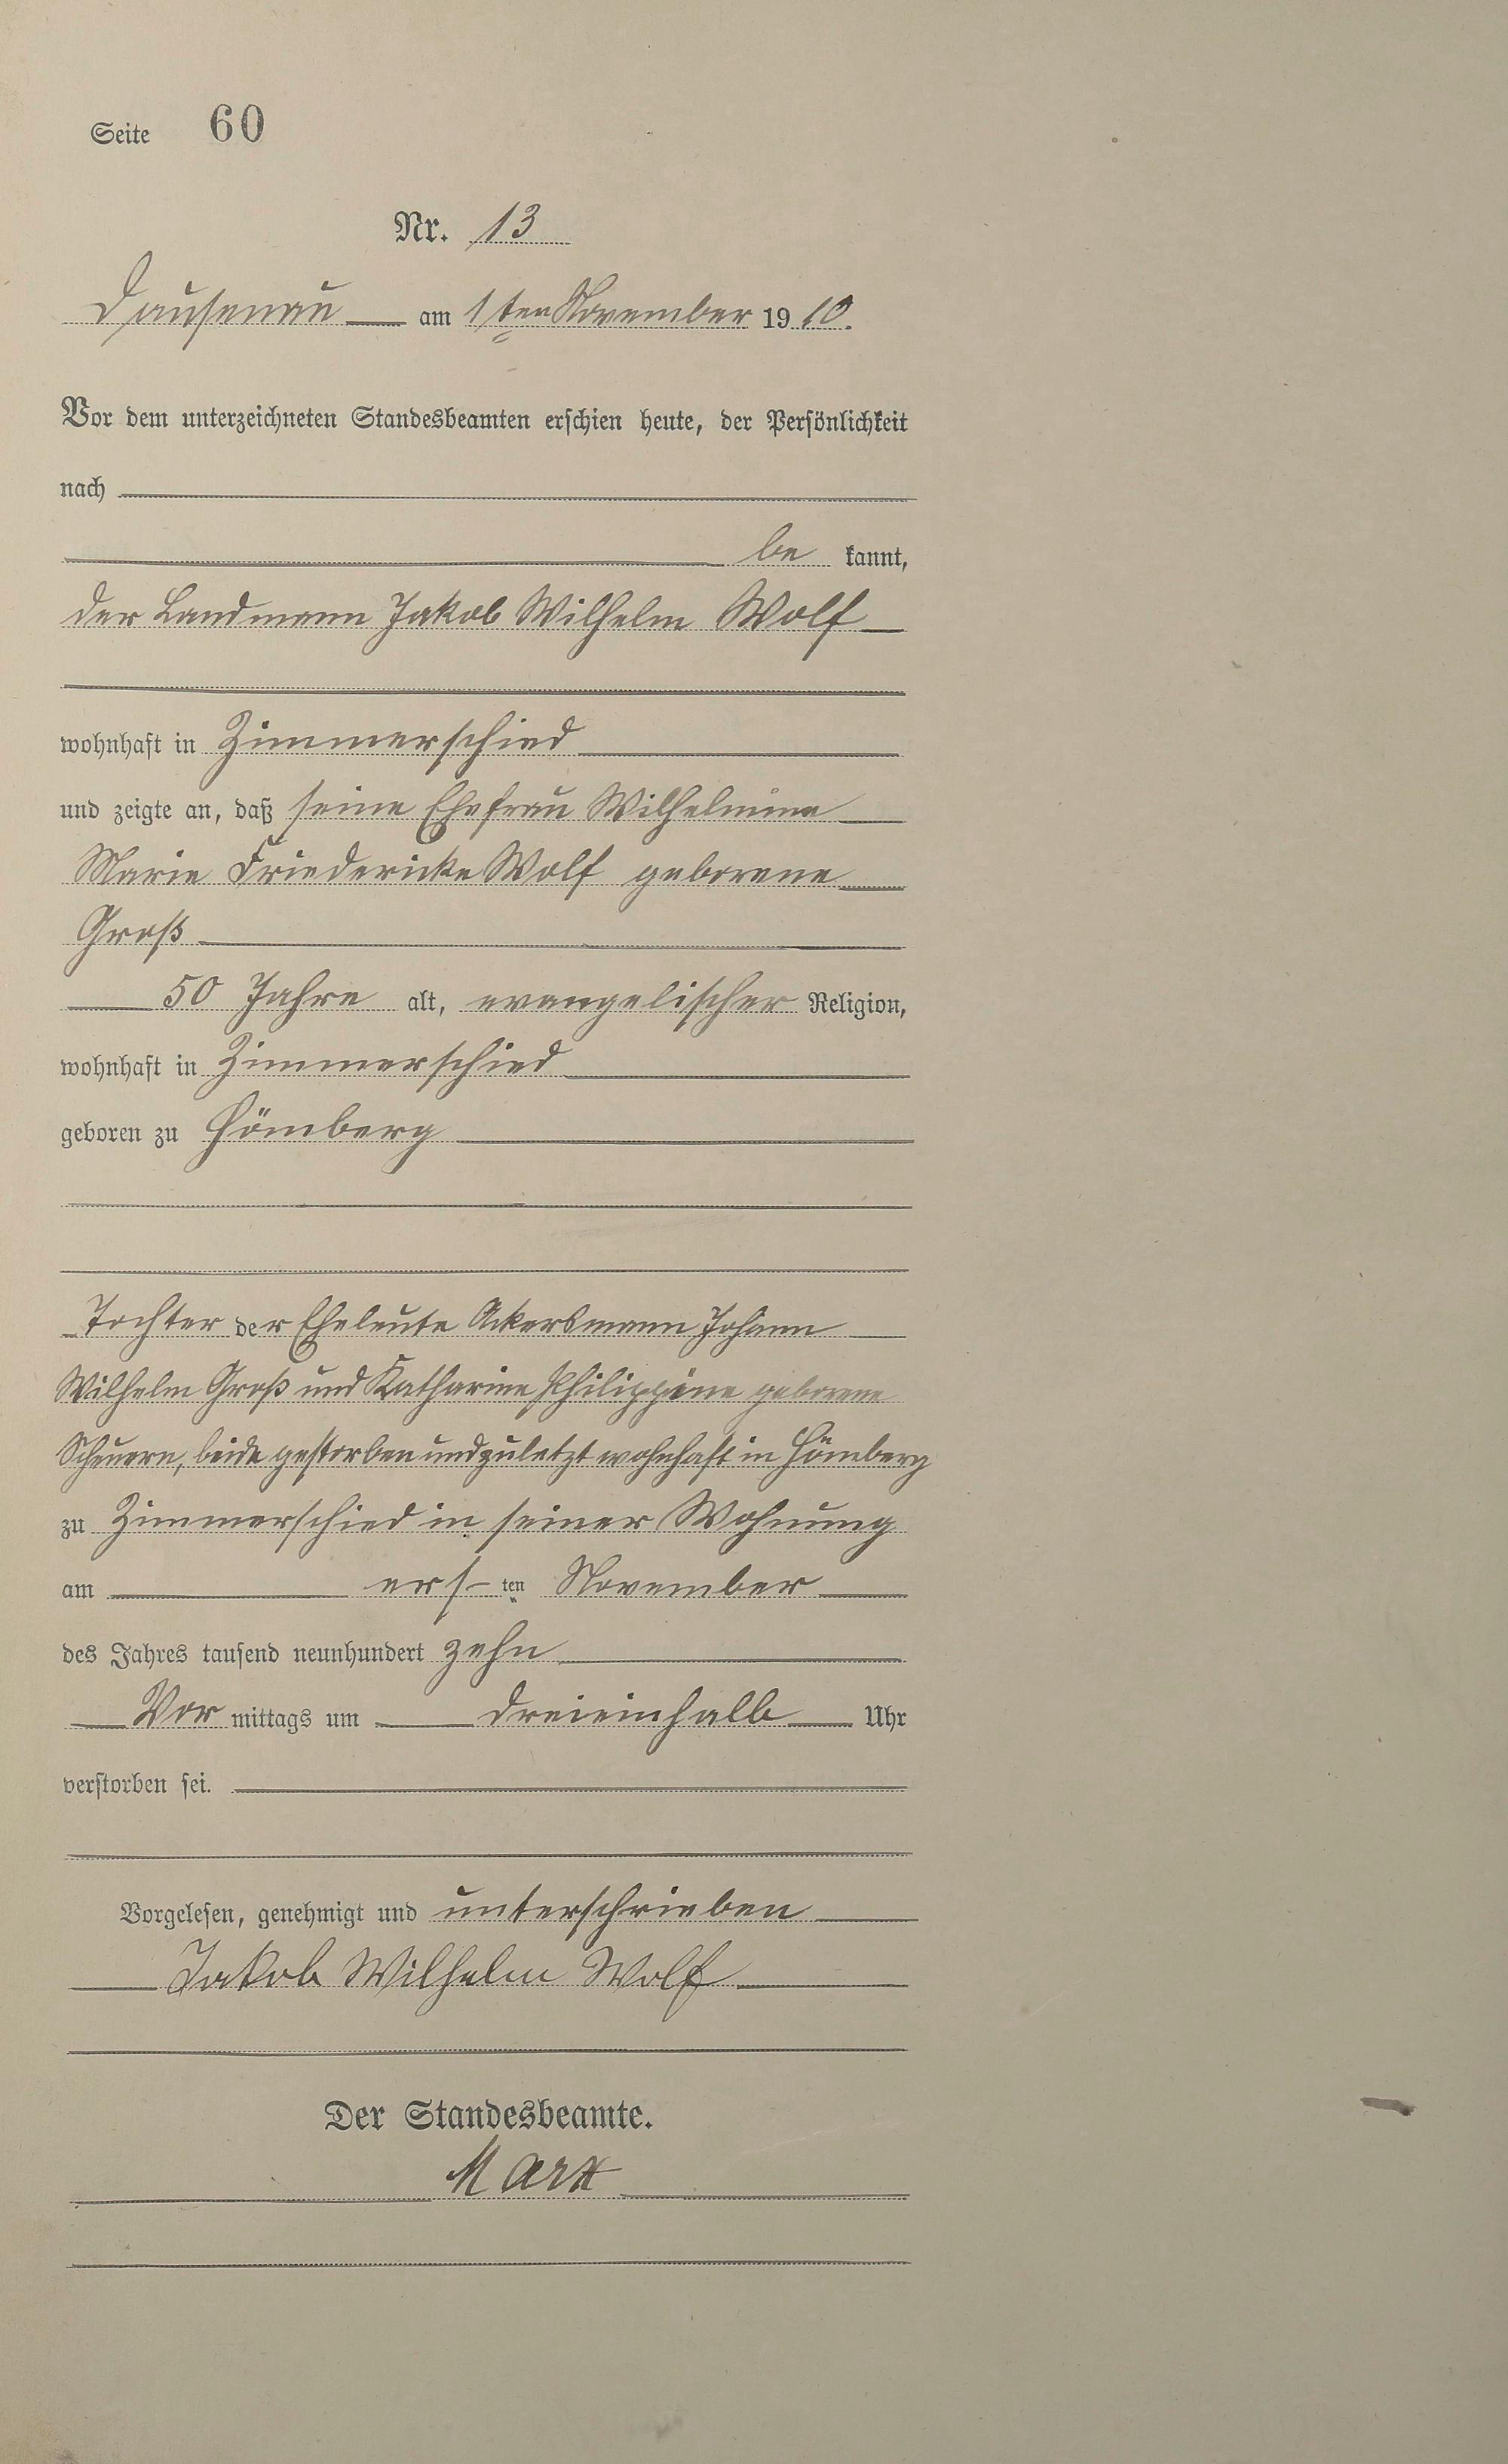 Seite 60
Nr. 13
Dausenau am 1ten November 1910.
Vor dem unterzeichneten Standesbeamten erschien heute, der Persönlichkeit
nach
be kannt,
der Landmann Jakob Wilhelm Wolf
wohnhaft in Zimmerschied
und zeigte an, daß seine Ehefrau Wilhelmine
Marie Friedericke Wolf geborene
Groß
50 Jahre alt, evangelischer Religion,
wohnhaft in Zimmerschied
geboren zu Hömberg
Tochter der Eheleute Ackersmann Johann
Wilhelm Groß und Katharine Philippine geborene
Scheuern, beide gestorben und zuletzt wohnhaft in Hömberg
zu Zimmerschied in seiner Wohnung
am ersten November
des Jahres tausend neunhundert zehn
Vor mittags um dreieinhalb Uhr
verstorben sei.
Vorgelesen, genehmigt und unterschrieben
Jakob Wilhelm Wolf
Der Standesbeamte.
Marx